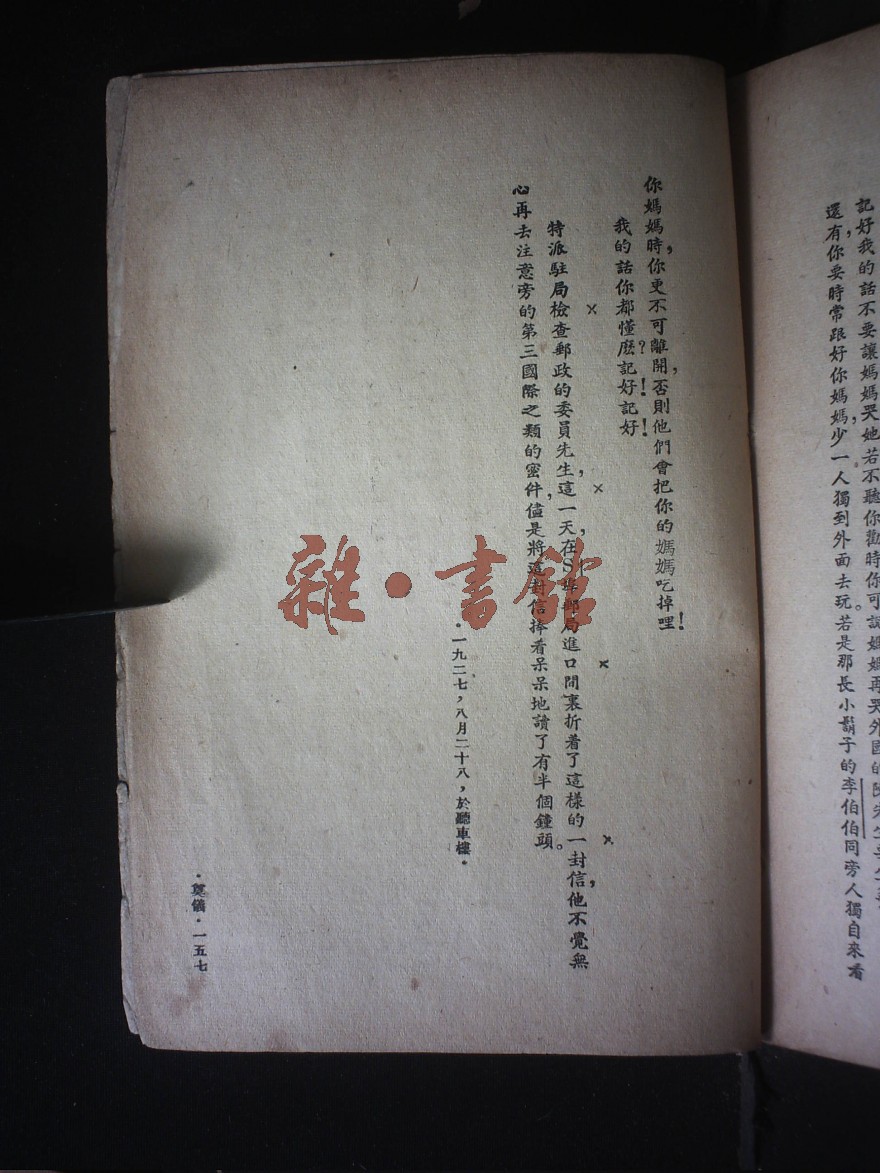 記好我的話不要讓媽媽哭她若不聽你勸時你可說媽媽再哭外國的陳先生要生氣
還有,你要時常跟好你媽媽,少一人獨到外面去玩。若是那長小鬍子的李伯伯同旁人獨自來看
你媽媽時,你更不可離開,否則他們會把你的媽媽吃掉哩!
我的話你都懂麽?記好!記好!
× × × ×
特派駐局檢查郵政的委員先生,這一天,在S埠郵局進口間裏折着了這樣的一封信,他不覺無
心再去注意旁的第三國際之類的密件,儘是將這封信捧着呆呆地讀了有半個鐘頭。
·一九二七,八月二十八,於聽車樓·
·奠儀·一五七
雜·書館